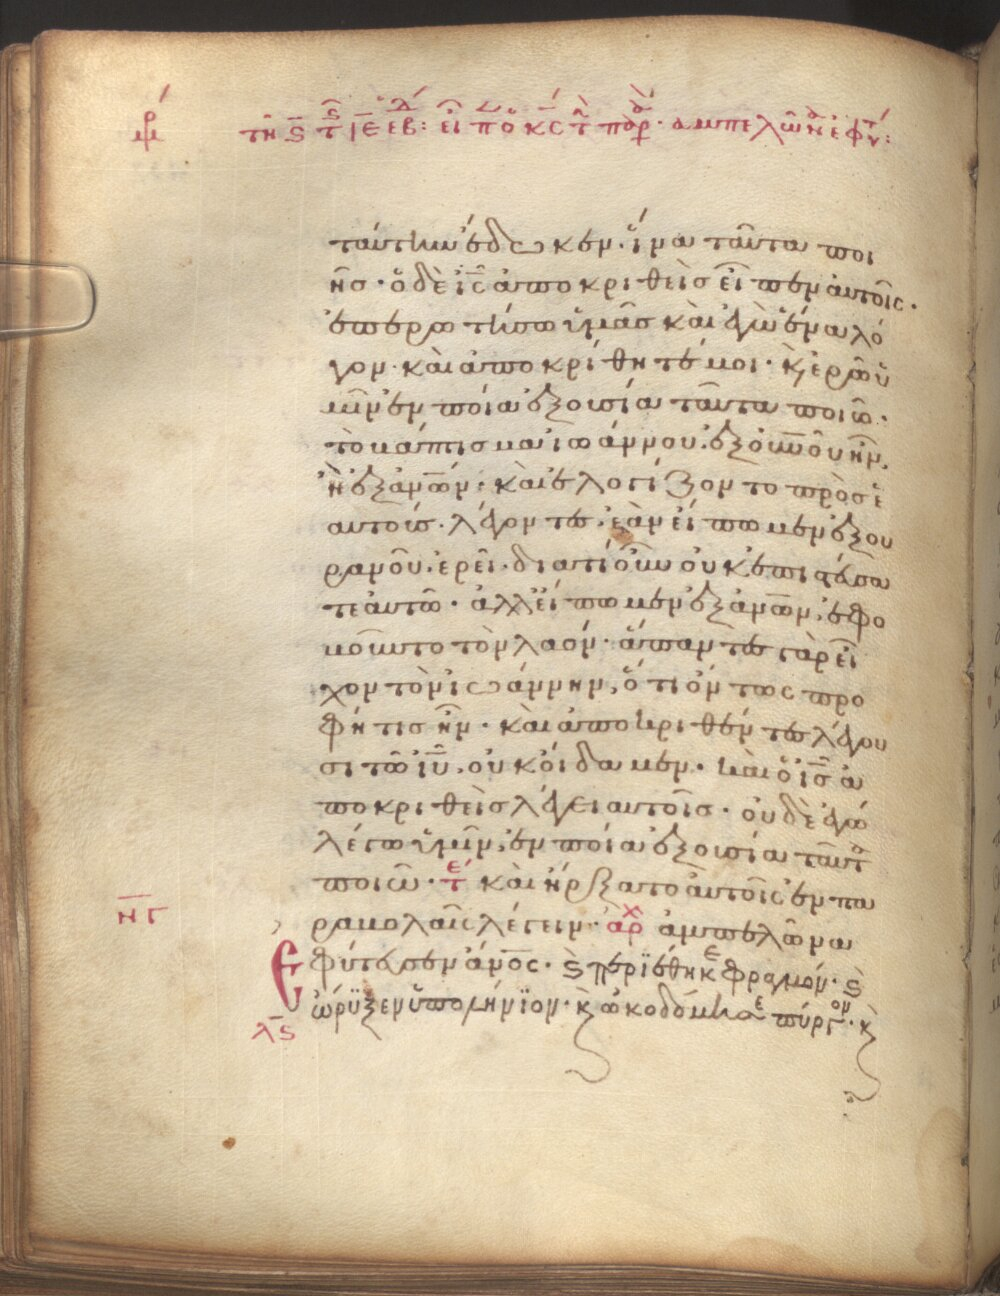 τῆ ς τ ιε εβ: εἶπ ὁ κς τ παρ· ἀμπελῶνα ἐφυτ:
ταύτην ἔδωκεν· ἵνα ταῦτα ποι
ῇς· ὁ δὲ ις ἀποκριθεὶς εἶπεν αὐτοῖς·
ἐπερωτήσω ὑμᾶς κἀγὼ ἕνα λό
γον· καὶ ἀποκρίθητέ μοι· κ ἐρῶ ὑ
μῖν ἐν ποία ἐξουσία ταῦτα ποιῶ·
τὸ βάπτισμα ἰωάννου, ἐξ οὐνοῦ ἦν,
ἢ ἐξ ἀνων; καὶ ἐλογίζοντο πρὸς ἑ
αυτοὺς· λέγοντες, ἐὰν εἴπωμεν ἐξ ου
ρανοῦ· ἐρεῖ· διατί οὖν οὐκ ἐπιστεύσα
τε αὐτῶ· ἀλλ εἴπωμεν ἐξ ἀνων, ἐφο
βοῦντο τὸν λαόν· ἅπαντες γὰρ εἶ
χον τὸν ἰωάννην, ὅτι ὄντως προ
φήτις ἦν· καὶ ἀποκριθέντες λέγου
σι τῶ ιυ, οὐκ οἴδαμεν· καὶ ὁ ις ἀ
ποκριθεὶς λέγει αὐτοῖς· οὐδὲ ἐγὼ
λέγω ὑμῖν, ἐν ποία ἐξουσία ταῦτ
ποιῶ· τε καὶ ἤρξατο αὐτοῖς ἐν πα
νγ
ραβολαῖς λέγειν· αρχ ἀμπελῶνα
ἐφύτευσεν ἀνος· ς περιέθηκε φραγμόν· ς
λς
ὤρυξεν ὑπολήνιον· κ ὠκοδόμησε πύργον· κ